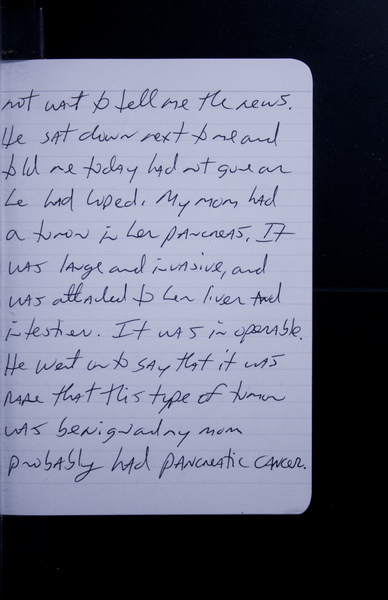 not want to tell me the news.
He sat down next to me and
told me today had not gone as
he had hoped. My mom had
a tumor in her pancreas. It
was large and invasive, and
was attached to her liver and
intestien. It was in operable.
He went on to say that it was
rare that this type of tumor
was benign and my mom
probably had pancreatic cancer.